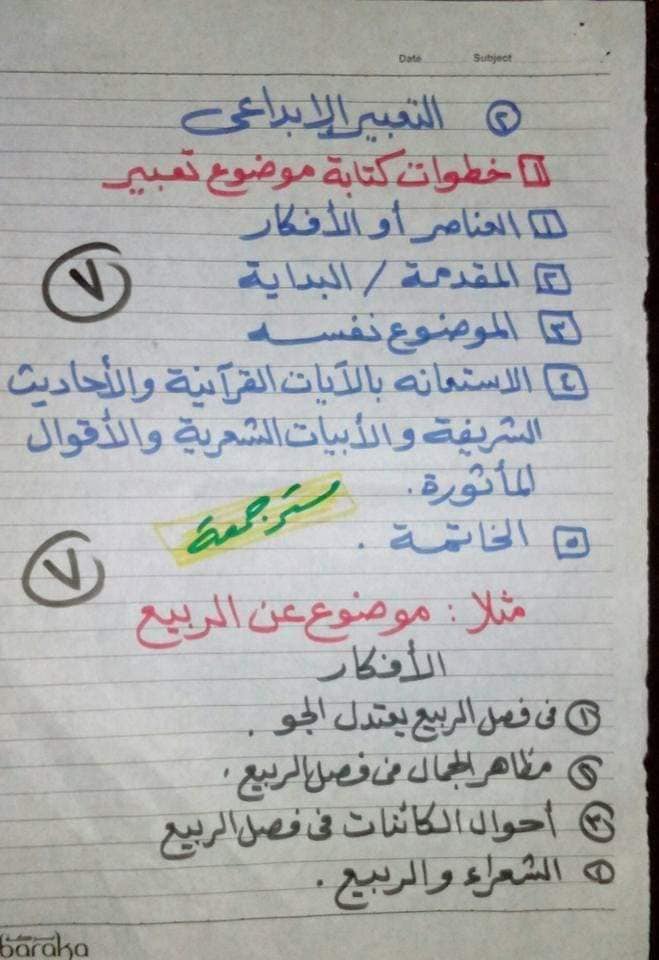 Date Subject
٢ التعبير الإبداعى
١ خطوات كتابة موضوع تعبير
١ العناصر أو الأفكار
٢ المقدمة / البداية
٧
٣ الموضوع نفسه
٤ الاستعانه بالآيات القرآنية والأحاديث
الشريفة والأبيات الشعرية والأقوال
المأثورة.
٥ الخاتمة .
٧
مثلا : موضوع عن الربيع
الأفكار
١ فى فصل الربيع يعتدل الجو .
٢ مظاهر الجمال فى فصل الربيع .
٣ أحوال الكائنات فى فصل الربيع
٤ الشعراء والربيع .
baraka